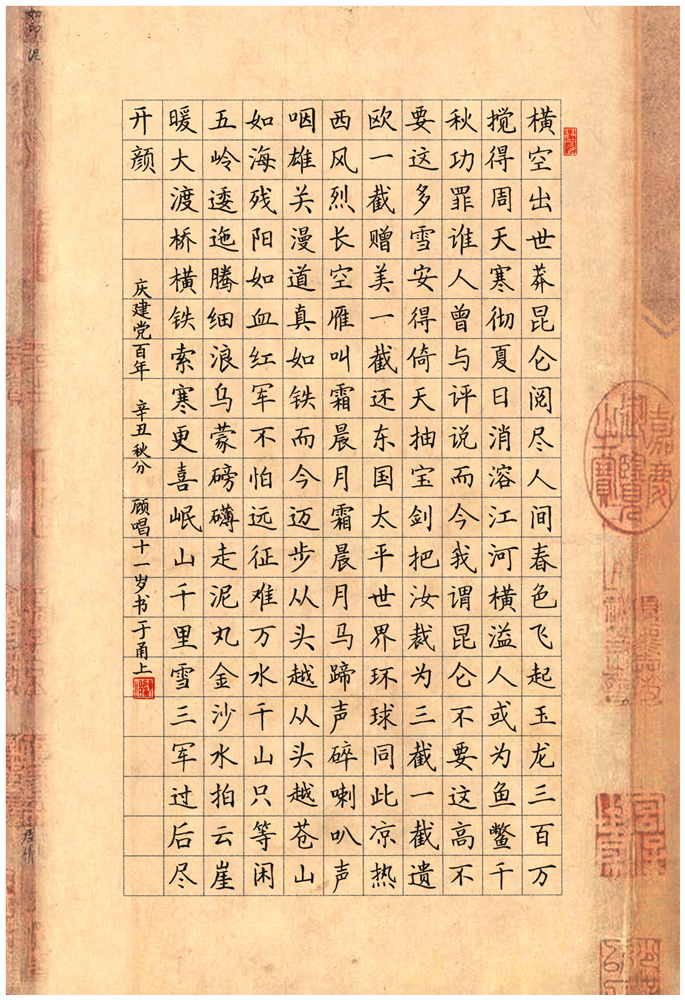 横空出世莽昆仑阅尽人间春色飞起玉龙三百万
搅得周天寒彻夏日消溶江河横溢人或为鱼鳖千
秋功罪谁人曾与评说而今我谓昆仑不要这高不
要这多雪安得倚天抽宝剑把汝裁为三截一截遗
欧一截赠美一截还东国太平世界环球同此凉热
西风烈长空雁叫霜晨月霜晨月马蹄声碎喇叭声
咽雄关漫道真如铁而今迈步从头越从头越苍山
如海残阳如血红军不怕远征难万水千山只等闲
五岭逶迤腾细浪乌蒙磅礴走泥丸金沙水拍云崖
暖大渡桥横铁索寒更喜岷山千里雪三军过后尽
开颜
庆建党百年 辛丑秋分 顾唱十一岁书于甬上
嘉慶御覽之寶